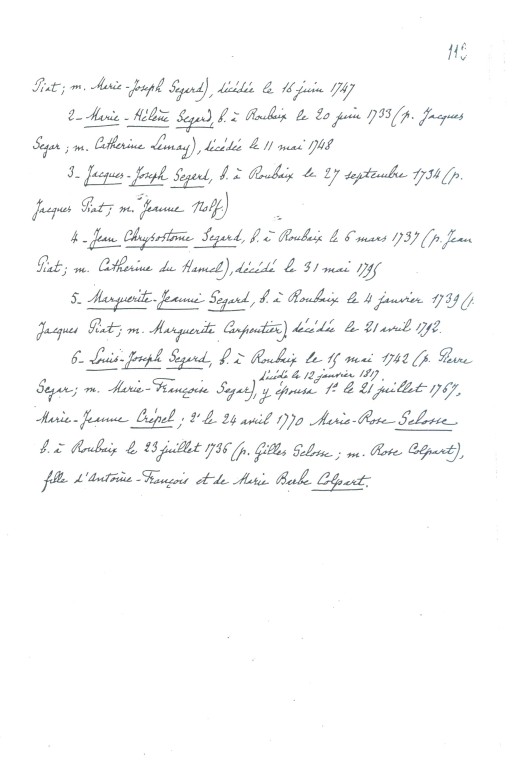 118
Piat ; m. Marie-Joseph Segard), décédée le 16 juin 1747
2- Marie-Hélène Segard, b. à Roubaix le 20 juin 1733 (p. Jacques
Segar ; m. Catherine Lemay), décédée le 11 mai 1748
3- Jacques-Joseph Segerd, b. à Roubaix le 27 septembre 1734 (p.
Jacques Piat ; m. Jeanne Nolf.)
4- Jean Chrysostome Segard, b. à Roubaix le 6 mars 1737 (p. Jean
Piat ; m. Catherine du Hamel), décédé le 31 mai 1795
5- Marguerite-Jeanne Segard, b. à Roubaix le 4 janvier 1739 (p.
Jacques Piat ; m. Marguerite Carpentier), décédée le 21 avril 1792.
6- Louis-Joseph Segard, b. à Roubaix le 15 mai 1742 (p. Pierre
décédé le 12 janvier 1817
Segar ; m. Marie-Françoise Segar), y épousa 1° le 21 juillet 1767,
Marie-Jeanne Crépel ; 2° le 24 avril 1770 Marie-Rose Selosse
b. à Roubaix le 23 juillet 1736 (p. Gilles Selosse ; m. Rose Colpart),
fille d'Antoine-François et de Marie Barbe Colpart.